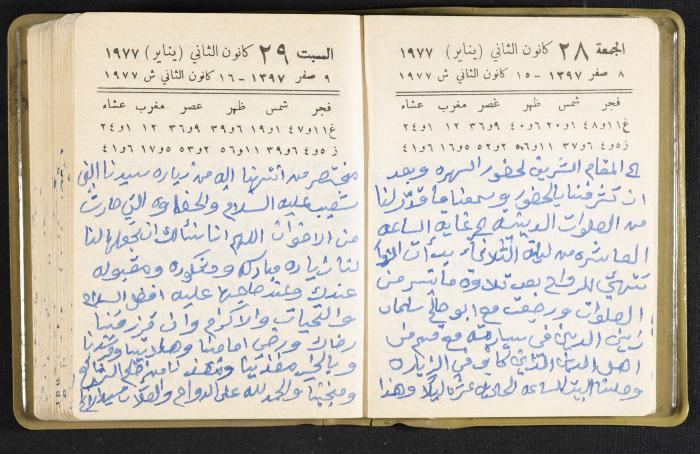 الجمعة ٢٨ كانون الثاني (يناير) ١٩٧٧
٨ صفر ١٣٩٧ - ١٥ كانون الثاني ش ١٩٧٧
فجر شمس ظهر عصر مغرب عشاء
الى المقام الشريف لحضور السهره وبعد
ان تشرفنا بالحضور وسمعنا ما قدّر لنا
من الصلوات الدينيه الى غاية الساعه
العاشره من ليلة الثلاثاء بدأت
تنتهي للرواح بعد تلاوة ما تيسر من
الصلوات ورجعت مع ابو صالح سلمان
زين الدين في سيارته مع قسم من
اهل الدين الذين كانوا في الزياره
وصلت البيت الساعه الحاديه عشره ليلاً وهذا
السبت ٢٩ كانون الثاني (يناير) ١٩٧٧
٩ صفر ١٣٩٧ - ١٦ كانون الثاني ش ١٩٧٧
فجر شمس ظهر عصر مغرب عشاء
مختصر من انتهنا اليه من زياره سيدنا النبي
شعيب عليه السلام والحفاوه التي صارت
من الاخوان اللهم انا نسألك ان تجعلها لنا
زياره مباركه ومشكوره ومقبوله
عندك وعند صاحبها عليه افضل السلام
والتحيات والاكرام وان ترزقنا
رضاك ورضى امامنا وهادينا
وبالخير
والحمد لله على الدوام